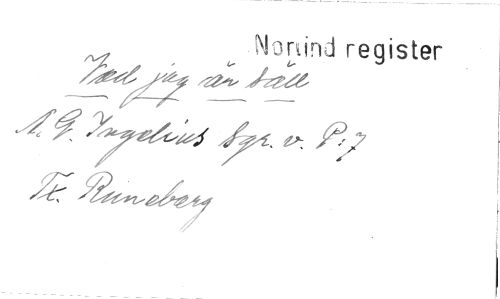 Norlind register
Vad jag är säll
A. G. Ingelius Sgr. v. P:7
Tx. Runeberg